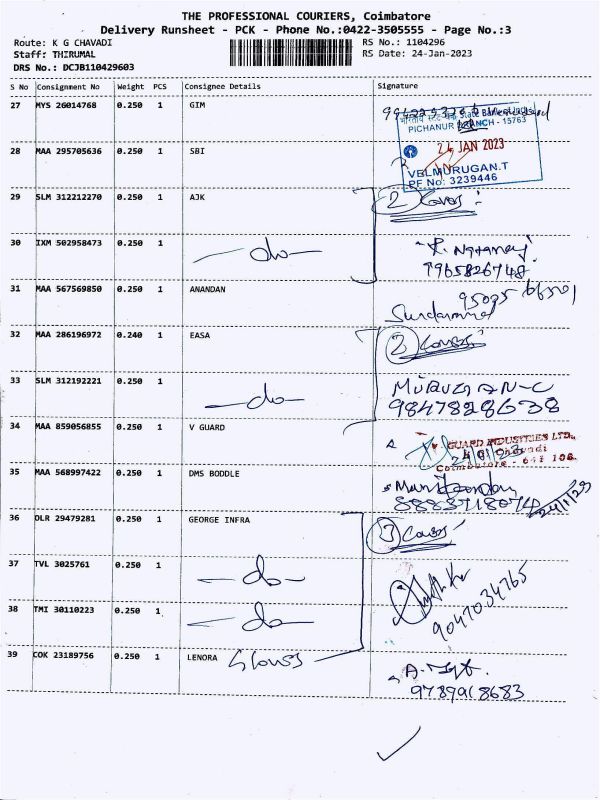 THE PROFESSIONAL COURIERS, Coimbatore
Delivery Runsheet - PCK - Phone No.:0422-3505555 - Page No.:3
Route: K G CHAVADI
RS No.: 1104296
Staff: THIRUMAL
RS Date: 24-Jan-2023
DRS No.: DCJB110429603
S No Consignment No Weight PCS Consignee Details Signature
27 MYS 26014768 0.250 1 GIM
State Bank of India
PICHANUR BRANCH - 15763
24 JAN 2023
VELMURUGAN.T
PF No: 3239446
28 MAA 295705636 0.250 1 SBI
29 SLM 312212270 0.250 1 AJK
2 Covers
30 IXM 502958473 0.250 1 -do-
R. Nataraj
7965826748
31 MAA 567569850 0.250 1 ANANDAN
32 MAA 286196972 0.240 1 EASA
2 Covers
33 SLM 312192221 0.250 1 -do-
MURUGAN-C
9847828638
34 MAA 859056855 0.250 1 V GUARD
V GUARD INDUSTRIES LTD.,
K.G. Chavadi
24/1/23
Coimbatore - 641 108
35 MAA 568997422 0.250 1 DMS BODDLE
24/1/23
36 DLR 29479281 0.250 1 GEORGE INFRA
3 Covers
37 TVL 3025761 0.250 1 -do-
38 TMI 30110223 0.250 1 -do-
9047034765
39 COK 23189756 0.250 1 LENORA Glouss
9789918683